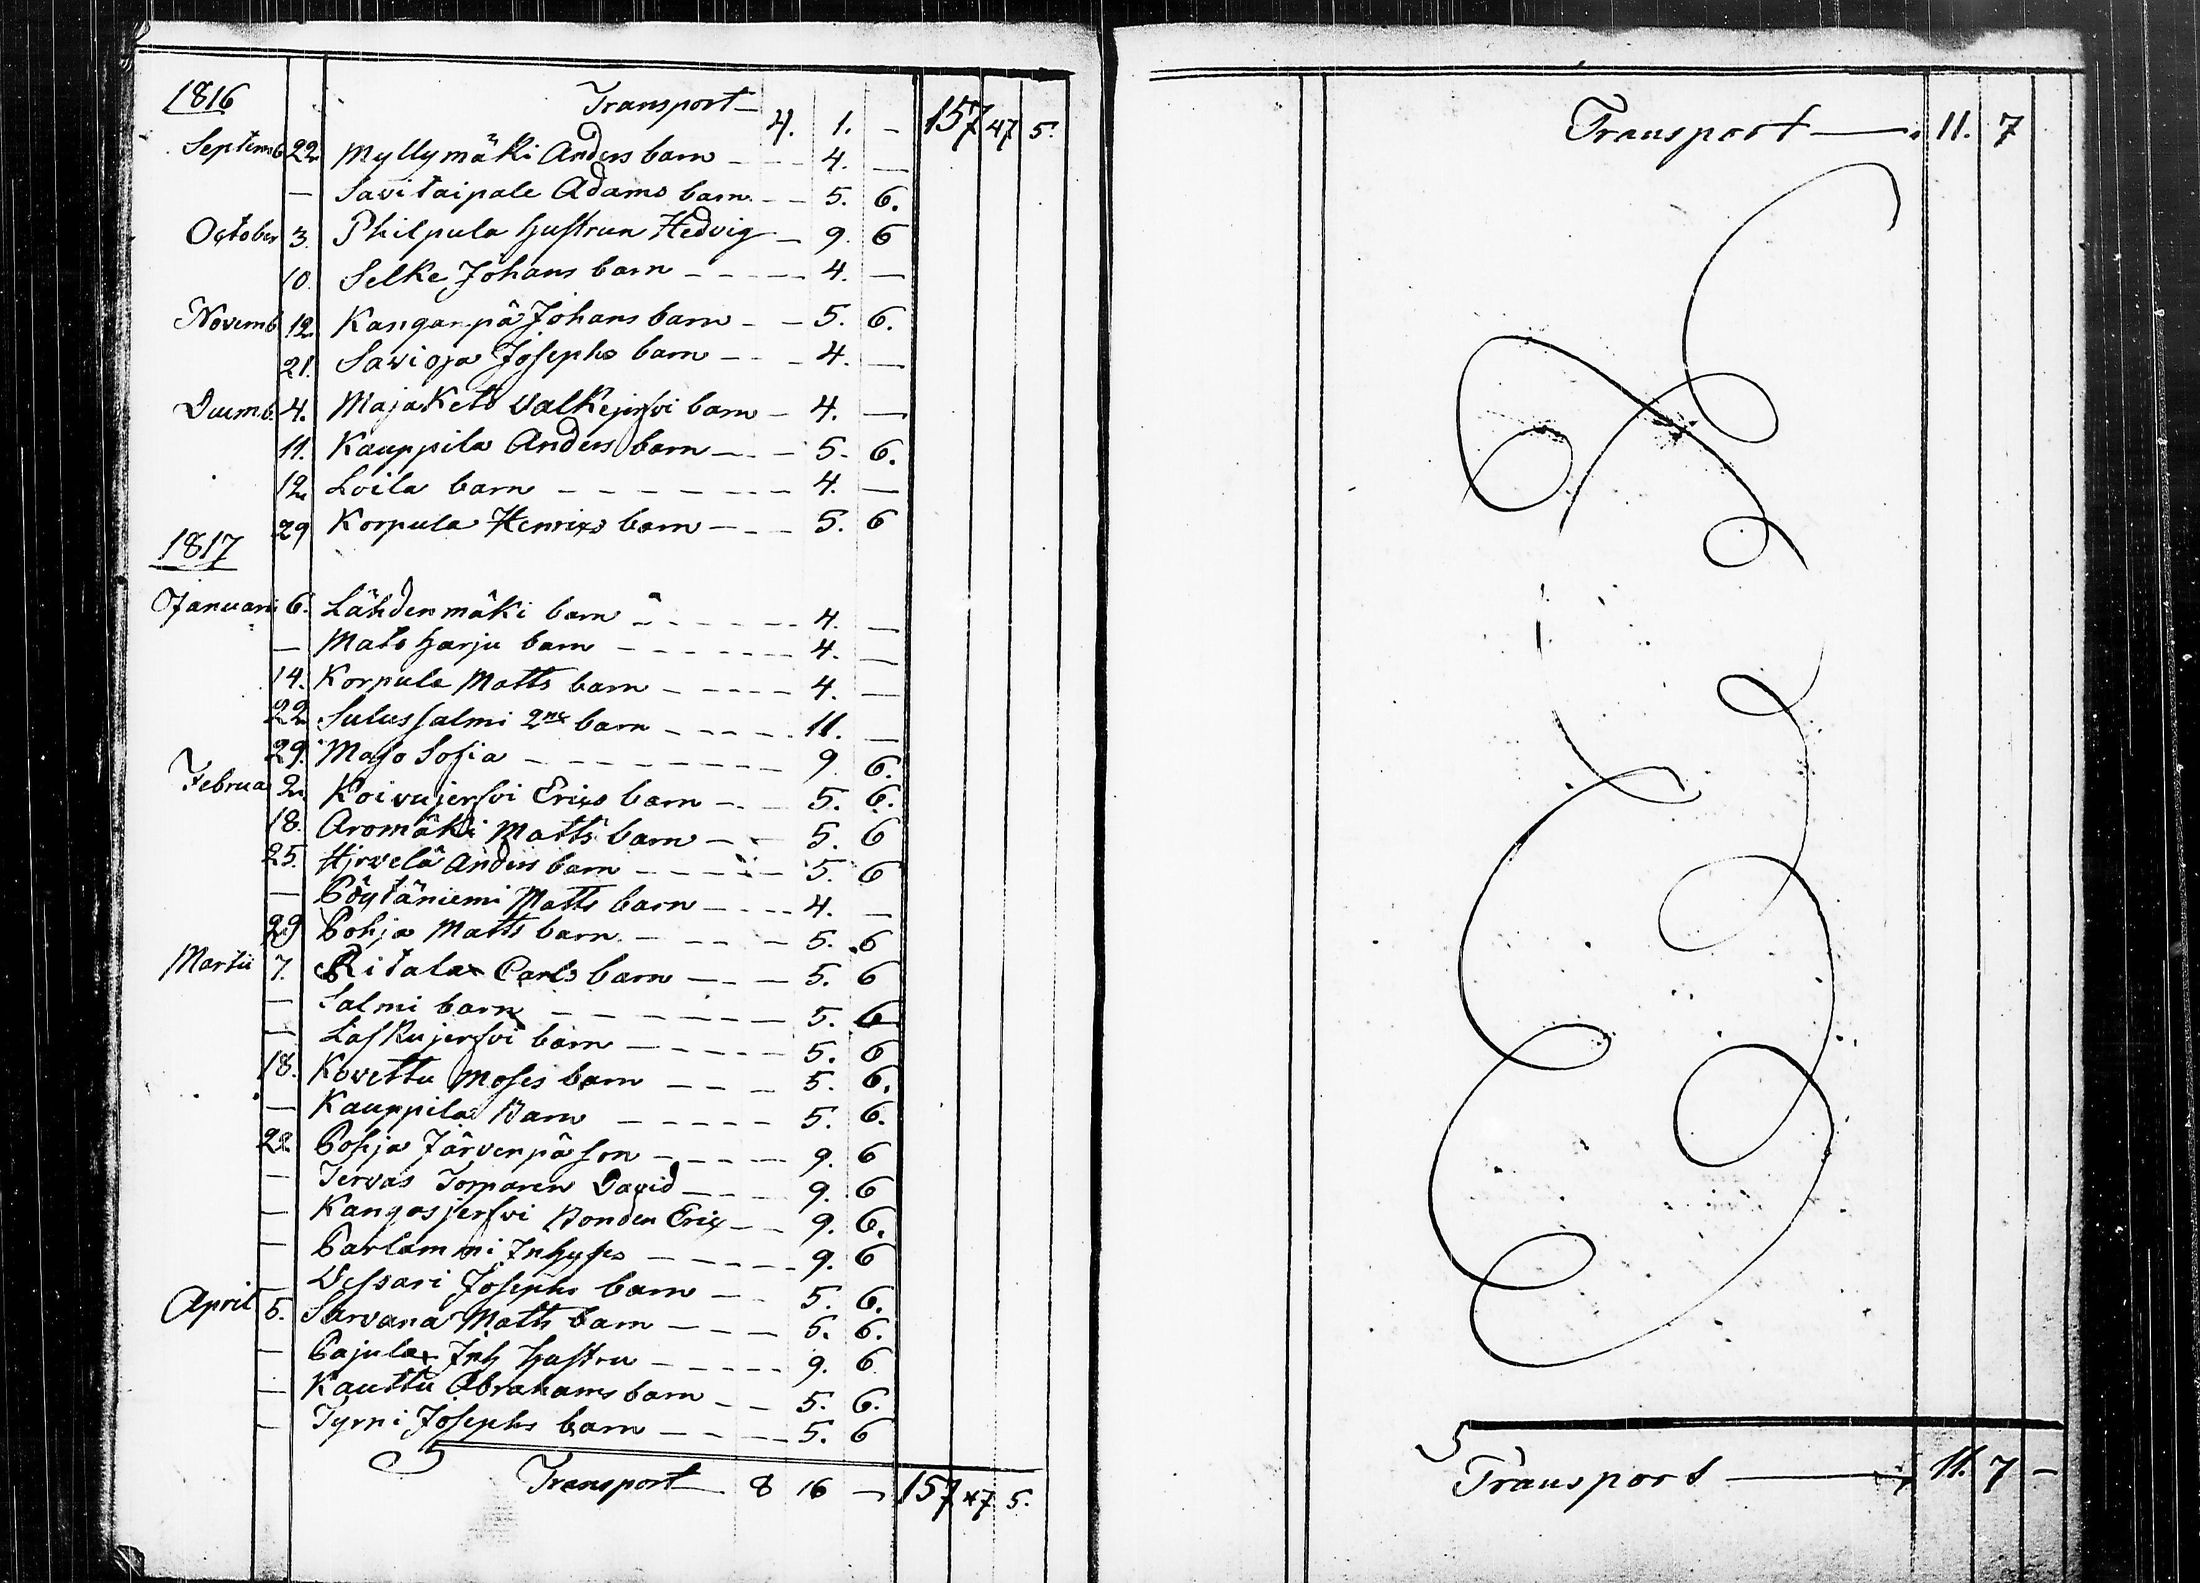 1816 Transport 4. 1. — 157 47 5.
Septemb 22. Myllymäki Anders barn - - - 4. —
— Savitaipale Adams barn - - 5. 6.
October 3. Philpula hustrun Hedvig — 9. 6
10. Selke Johans barn - - - - 4. —
Novemb 12. Kanganpä Johans barn - - 5. 6.
21. Savioja Josephs barn - - - 4. —
Decemb. 4. Majaketo Valkejersvi barn — 4. —
11. Kauppila Anders barn - - - 5. 6.
12. Loila barn - - - - - - - 4. —
29 Korpula Henrics barn - - - 5. 6
1817
Januari 6. Lähdenmäki barn - - - - - - 4. —
— Mato harju barn - - - - - - 4. —
14. Korpula Matts barn - - - - 4. —
22. Sulussalmi 2ne barn - - - - 11. —
29. Maso Sofia - - - - - - - 9 6.
Februa 2. Koivujersvi Erics barn - - - 5. 6.
18. Aromäki Matts barn - - 5. 6
25. Hirvelä Anders barn - - - - - 5. 6
— Pöytäniemi Matts barn - - - 4. —
29 Pohja Matts barn - - - - 5. 6
Martii 7. Ritala Carls barn - - - 5. 6
— Salmi barn - - - - - - - 5. 6
— Laskujersvi barn - - - - - 5. 6
18. Kovettu Moses barn - - - 5. 6.
— Kauppila Barn - - - - - 5. 6.
22. Pohja Järvenpä son - - - - - 9. 6
— Tervas Torparen David - - - 9. 6
— Kangosjersvi Bonden Eric - - 9. 6.
— Parlammi Inhyses - - - - - 9. 6
— Vessari Josephs barn - - - 5. 6.
April 5. Sarvana Matts barn - - - - 5. 6.
— Pajula Inh hustru - - - - - 9. 6
— Kauttu Abrahams barn - - - 5. 6.
— Tyrni Josephs barn - - - - 5. 6
Transport 8 16 — 157 47 5.
Transport — 11. 7
Transport — 11. 7 —